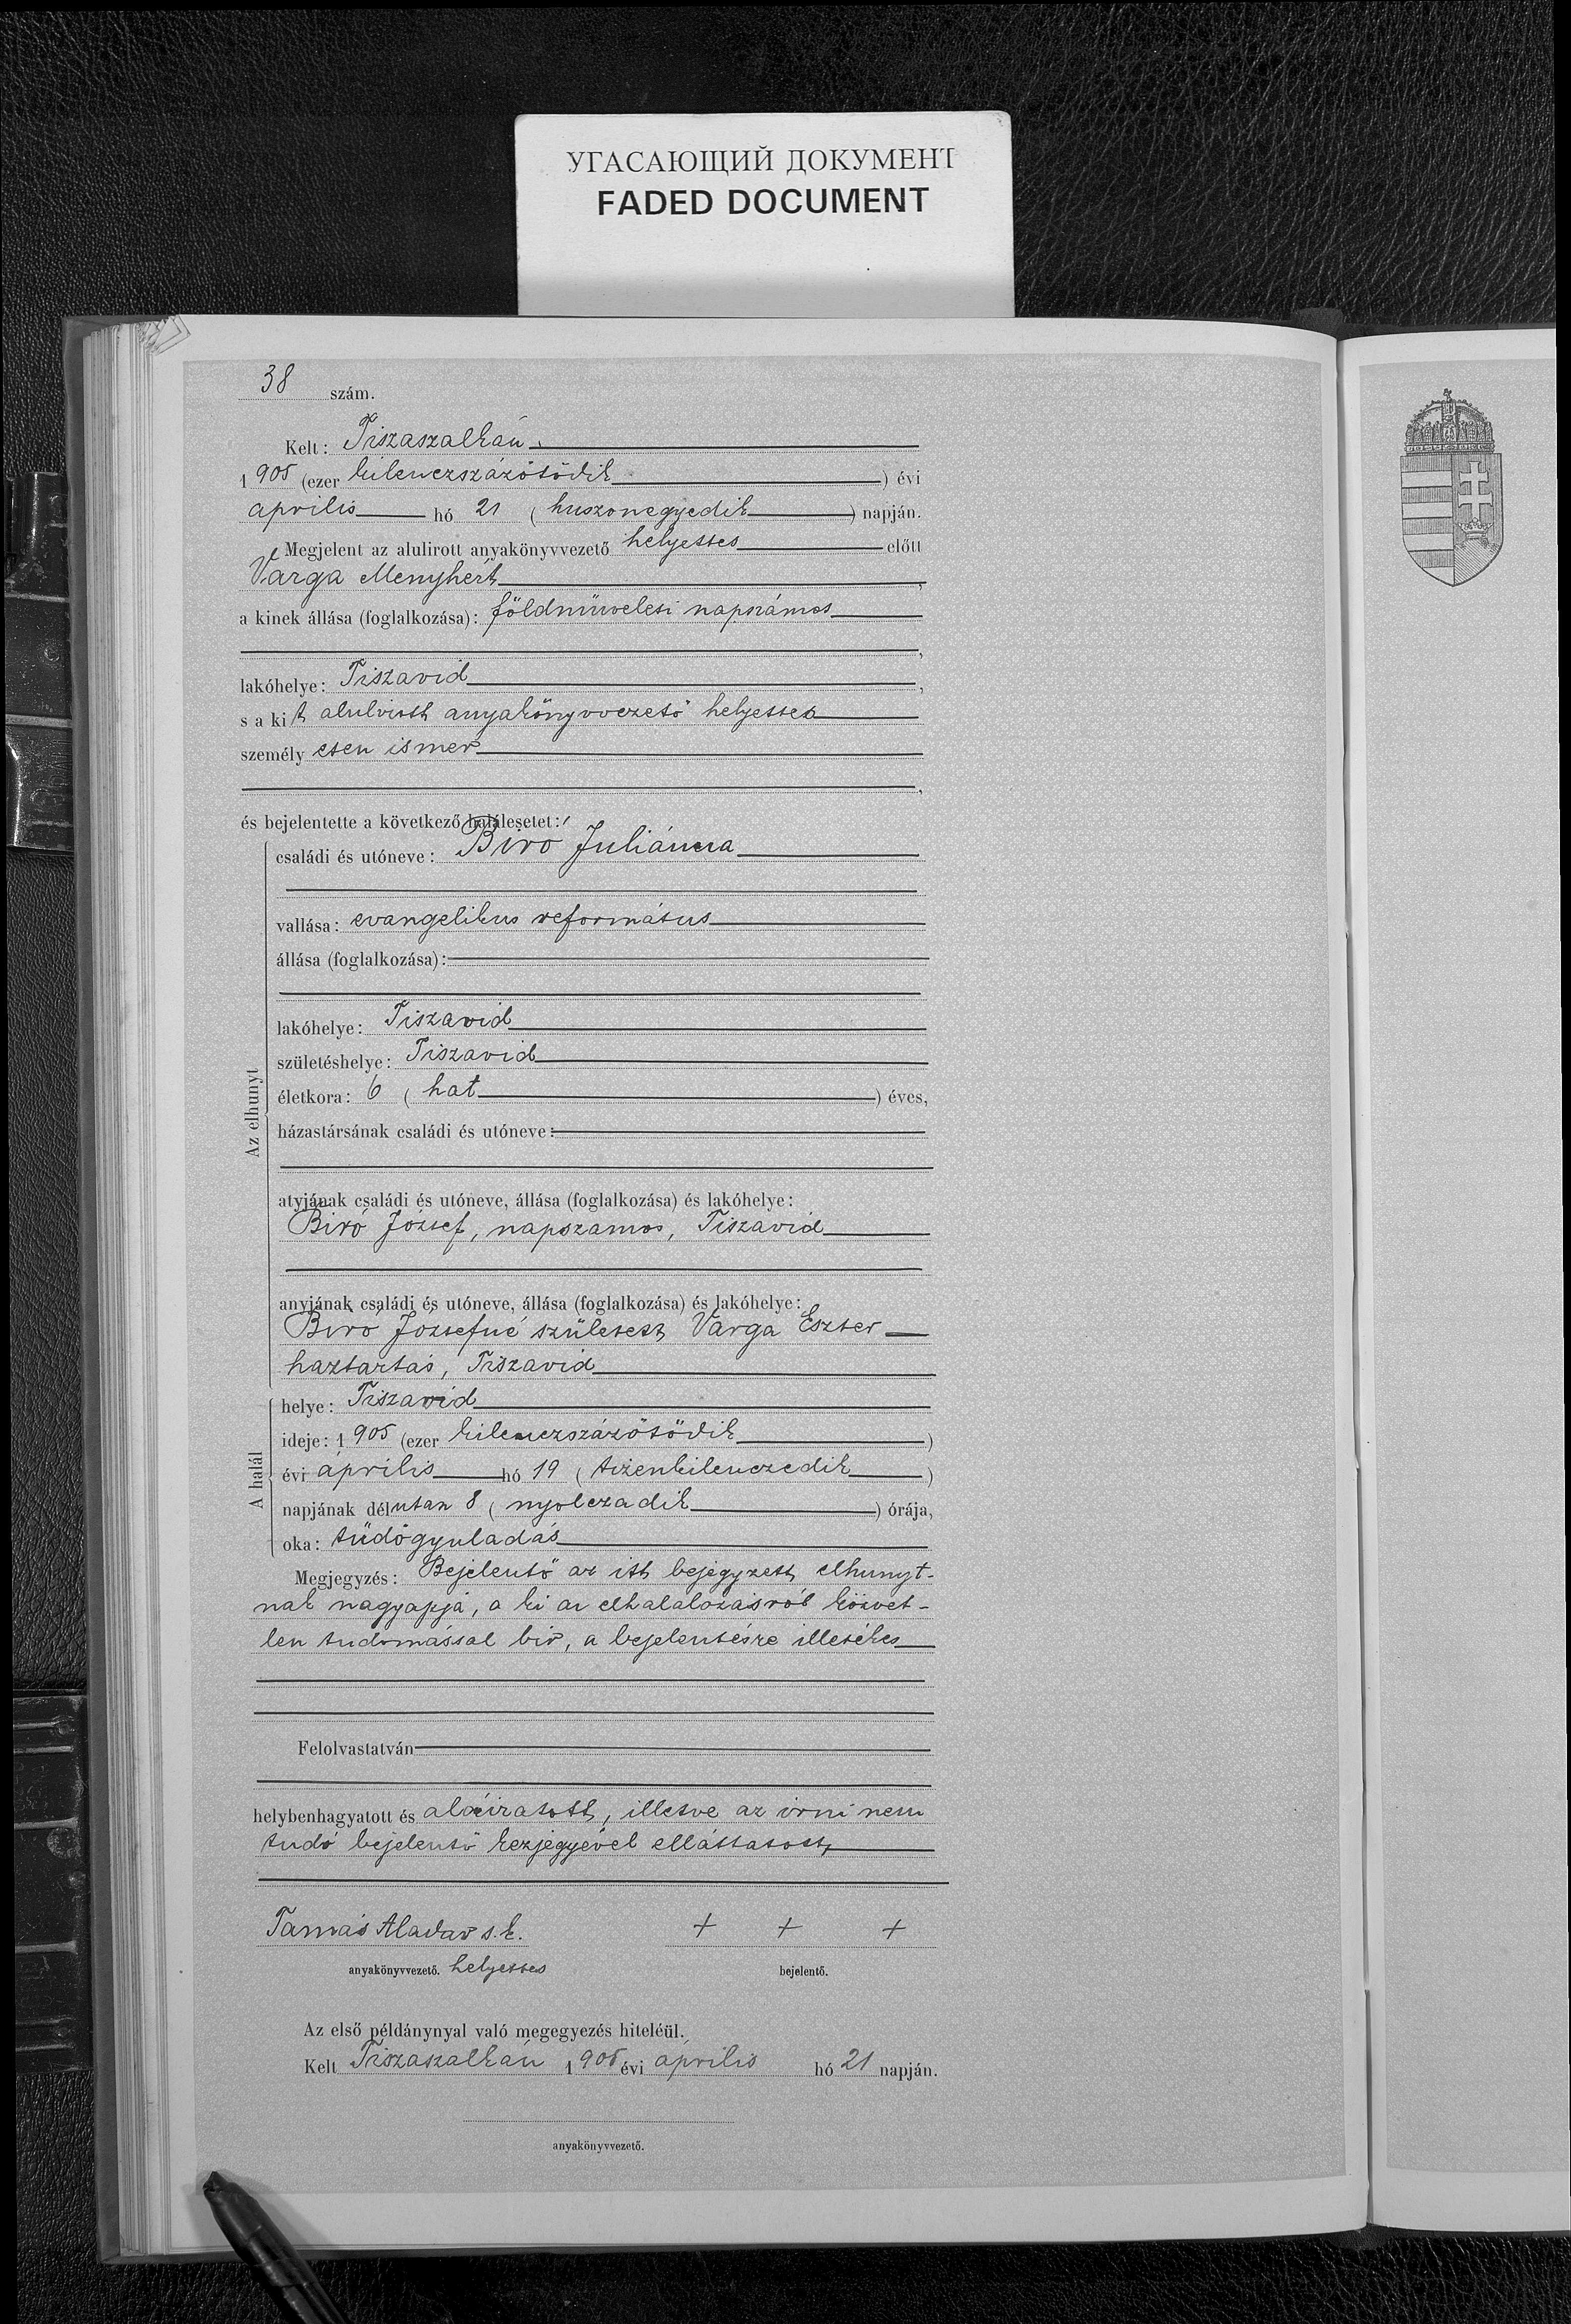 УГАСАЮЩИЙ ДОКУМЕНТ
FADED DOCUMENT
38 szám.
Kelt: Tiszaszalkán
1905 (ezer kilenczszázötödik) évi
április hó 21 (huszonegyedik) napján.
Megjelent az alulirott anyakönyvvezető helyettes előtt
Varga Menyhért,
a kinek állása (foglalkozása): földmüvelesi napszámos
,
lakóhelye: Tiszavid,
s a kit alulirott anyakönyvvezető helyettes
személyesen ismer
,
és bejelentette a következő halálesetet:
Az elhunyt
családi és utóneve: Biró Juliánna
vallása: evangelikus református
állása (foglalkozása):
lakóhelye: Tiszavid
születéshelye: Tiszavid
életkora: 6 (hat) éves,
házastársának családi és utóneve:
atyjának családi és utóneve, állása (foglalkozása) és lakóhelye:
Biró József, napszamos, Tiszavid
anyjának családi és utóneve, állása (foglalkozása) és lakóhelye:
Biró Józsefné született Varga Eszter
haztartás, Tiszavid
A halál
helye: Tiszavid
ideje: 1905 (ezer kilenczszázötödik)
évi április hó 19 (tizenkilenczedik)
napjának délután 8 (nyolczadik) órája,
oka: tüdőgyuladás
Megjegyzés: Bejelentő az itt bejegyzett elhunyt-
nak nagyapja, a ki az elhalalozásról közvet-
len tudomással bir, a bejelentésre illetékes
Felolvastatván
helybenhagyatott és aláiratott, illetve az irni nem
tudó bejelentő kezjegyével elláttatott,
Tamás Aladár s.k. + + +
anyakönyvvezető. helyettes bejelentő.
Az első példánynyal való megegyezés hiteléül.
Kelt Tiszaszalkán 1905 évi április hó 21 napján.
anyakönyvvezető.